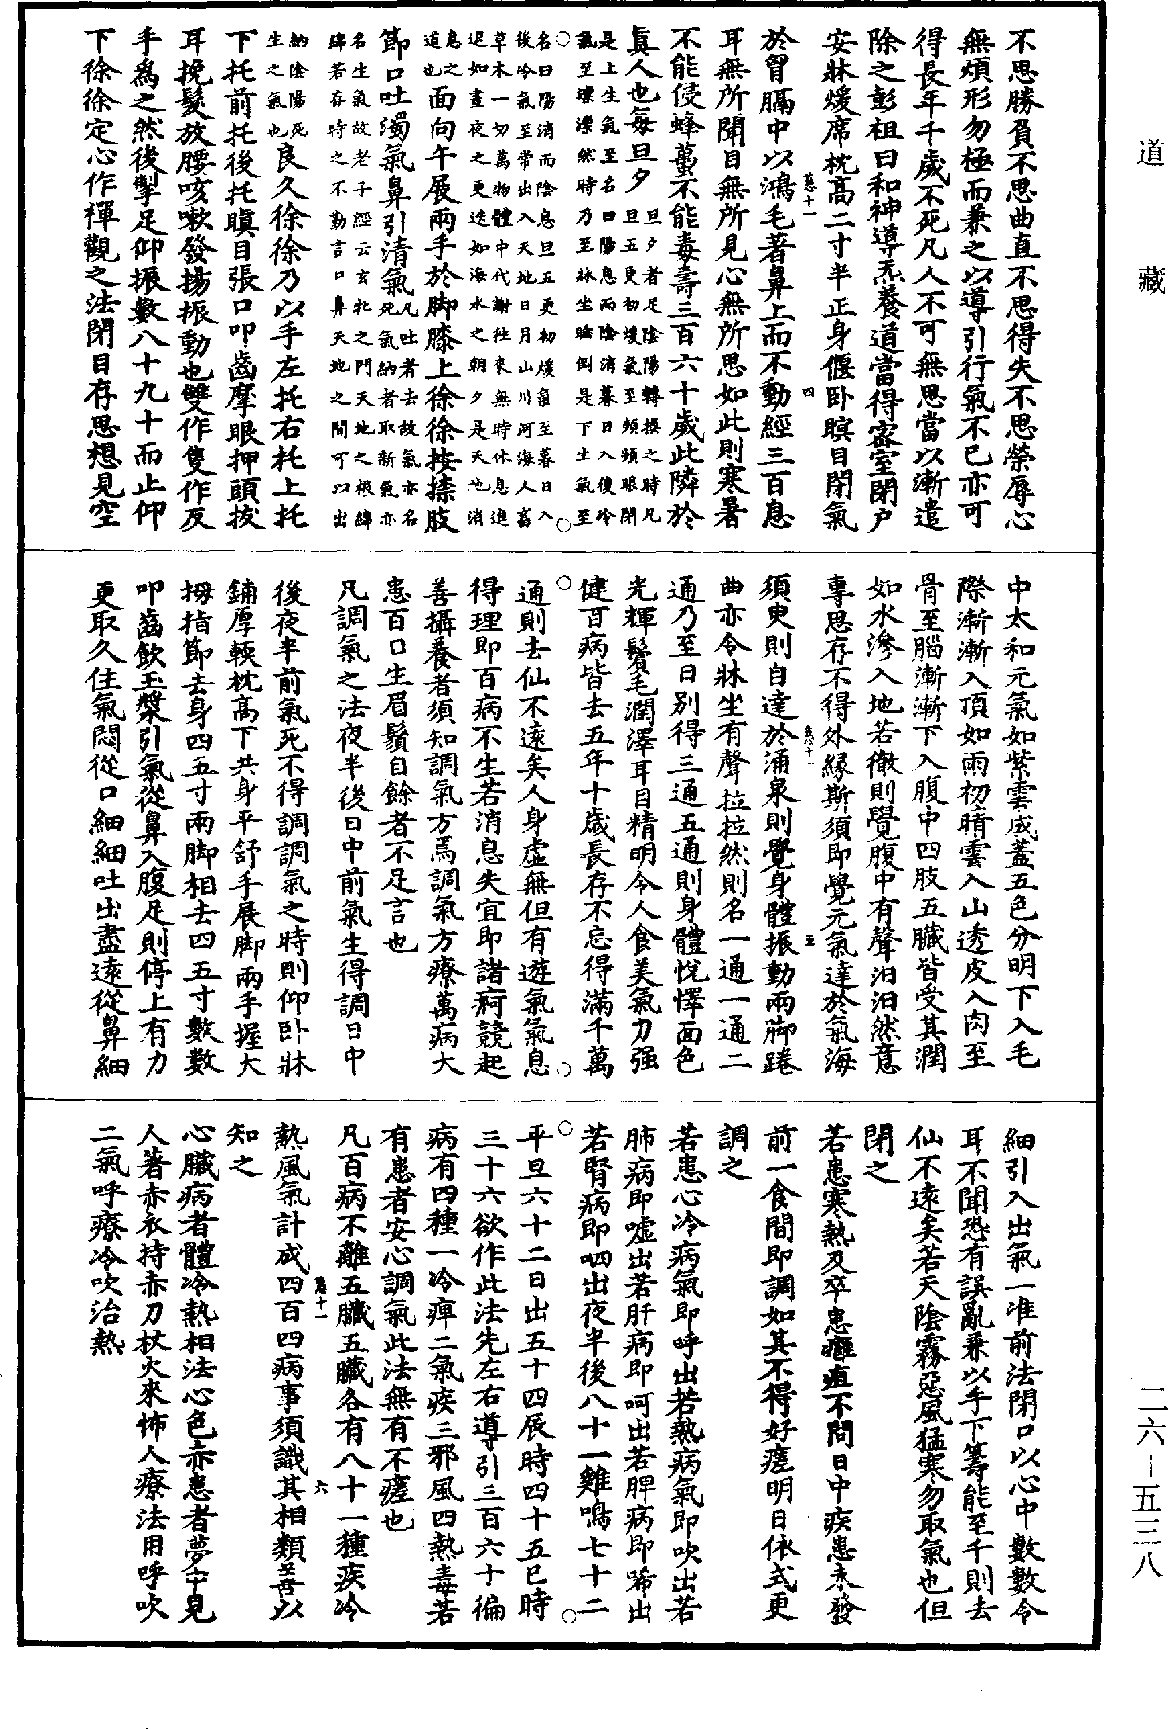 道藏
不思勝負不思曲直不思得失不思榮辱心
無煩形勿極而兼之以導引行氣不已亦可
得長年千歲不死凡人不可無思當以漸遣
除之彭祖曰和神導炁養道當得密室閉戶
安牀煖席枕高二寸半正身偃卧瞑目閉氣
於胷膈中以鴻毛著鼻上而不動經三百息
耳無所聞目無所見心無所思如此則寒暑
不能侵蜂蠆不能毒壽三百六十歲此隣於
眞人也每旦夕旦夕者是陰陽轉換之時凡旦五更初煖氣至頻頻眼閉
是上生氣至名曰陽息而陰消暮日入後冷氣至凜凜然時乃至牀坐睡倒是下生氣至
名曰陽消而陰息旦五更初煖氣至暮日入後冷氣至常出入天地日月山川河海人畜
草木一切萬物體中代謝往來無時休息進退如晝夜之更迭如海水之朝夕是天地消
息之道也面向午展兩手於脚膝上徐徐按捺肢
節口吐濁氣鼻引清氣凡吐者去故氣亦名死氣納者取新氣亦
名生氣故老子經云玄牝之門天地之根綿綿若存時之不勤言口鼻天地之間可以出
納陰陽死生之氣也良久徐徐乃以手左托右托上托
下托前托後托瞋目張口叩齒摩眼押頭拔
耳挽髮放腰咳嗽發揚振動也雙作隻作反
手爲之然後掣足仰振數八十九十而止仰
下徐徐定心作禪觀之法閉目存思想見空
中太和元氣如紫雲成蓋五色分明下入毛
際漸漸入頂如雨初晴雲入山透皮入肉至
骨至腦漸漸下入腹中四肢五臟皆受其潤
如水滲入地若徹則覺腹中有聲汩汩然意
專思存不得外緣斯須即覺元氣達於氣海
須臾則自達於涌泉則覺身體振動兩脚踡
曲亦令牀坐有聲拉拉然則名一通一通二
通乃至日別得三通五通則身體悅懌面色
光輝鬢毛潤澤耳目精明令人食美氣力强
健百病皆去五年十歲長存不忘得滿千萬
通則去仙不遠矣人身虛無但有遊氣氣息
得理即百病不生若消息失宜即諸痾競起
善攝養者須知調氣方焉調氣方療萬病大
患百口生眉鬚自餘者不足言也
凡調氣之法夜半後日中前氣生得調日中
後夜半前氣死不得調調氣之時則仰卧牀
鋪厚輭枕高下共身平舒手展脚兩手握大
拇指節去身四五寸兩脚相去四五寸數數
叩齒飲玉漿引氣從鼻入腹足則停上有力
更取久住氣悶從口細細吐出盡遠從鼻細
細引入出氣一准前法閉口以心中數數令
耳不聞恐有誤亂兼以手下筭能至千則去
仙不遠矣若天陰霧惡風猛寒勿取氣也但
閉之
若患寒熱及卒患癰疽不問日中疾患未發
前一食間即調如其不得好瘥明日依式更
調之
若患心冷病氣即呼出若熱病氣即吹出若
肺病即噓出若肝病即呵出若脾病即唏出
若腎病即呬出夜半後八十一雞鳴七十二
平旦六十二日出五十四辰時四十五巳時
三十六欲作此法先左右導引三百六十徧
病有四種一冷痺二氣疾三邪風四熱毒若
有患者安心調氣此法無有不瘥也
凡百病不離五臟五臟各有八十一種疾冷
熱風氣計成四百四病事須識其相類善以
知之
心臟病者體冷熱相法心色赤患者夢中見
人著赤衣持赤刀杖火來怖人療法用呼吹
二氣呼療冷吹治熱
二六-五三八